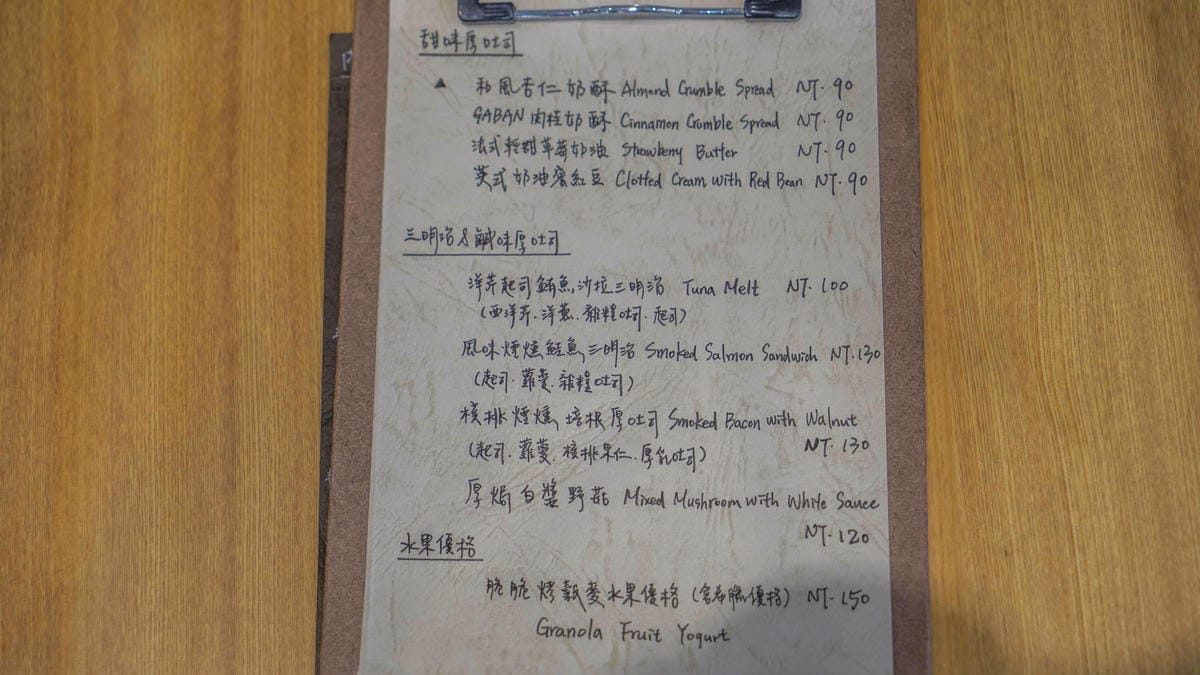 甜味厚吐司
▲ 和風杏仁奶酥 Almond Crumble Spread NT. 90
GABAN 肉桂奶酥 Cinnamon Crumble Spread NT. 90
法式輕甜草莓奶油 Strawberry Butter NT. 90
英式奶油蜜紅豆 Clotted Cream with Red Bean NT. 90
三明治&鹹味厚吐司
洋芹起司鮪魚沙拉三明治 Tuna Melt NT. 100
(西洋芹.洋蔥.雜糧吐司.起司)
風味煙燻鮭魚三明治 Smoked Salmon Sandwich NT. 130
(起司.蘿蔓.雜糧吐司)
核桃煙燻培根厚吐司 Smoked Bacon with Walnut
NT. 130
(起司.蘿蔓.核桃果仁.厚乳吐司)
厚焗白醬野菇 Mixed Mushroom with White Sauce
NT. 120
水果優格
脆脆烤穀麥水果優格 (含希臘優格) NT. 150
Granola Fruit Yogurt